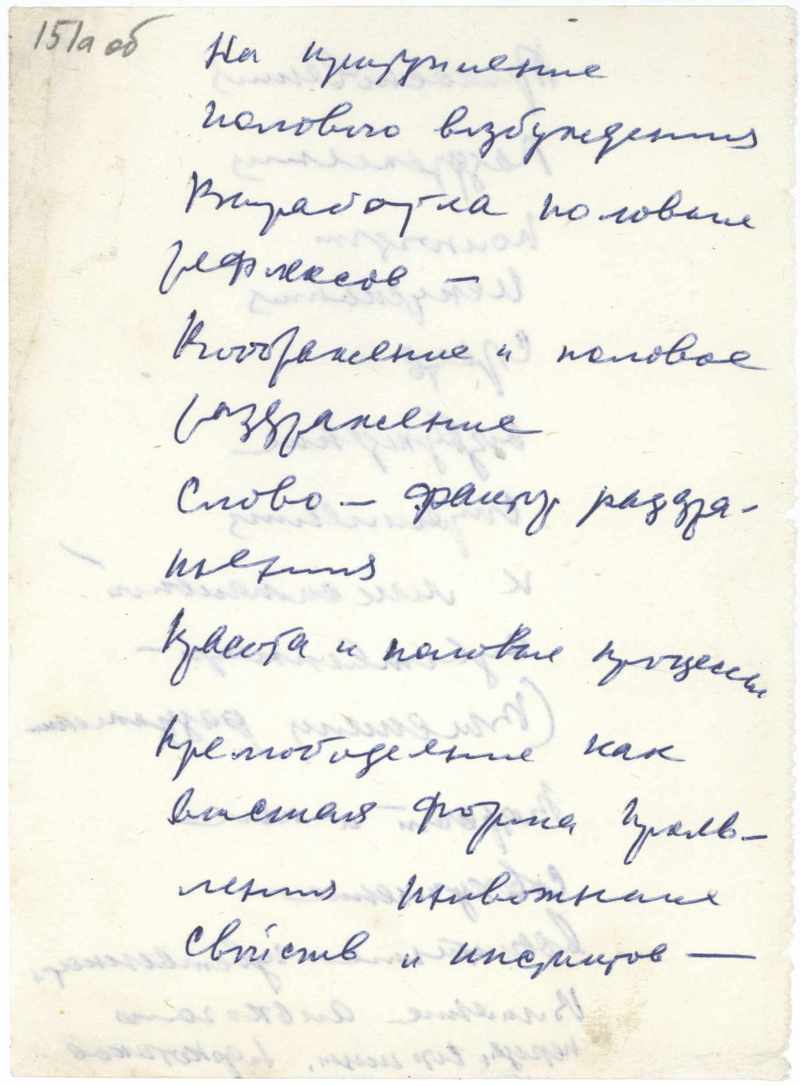 151а об
На притупление
полового возбуждения
Выработка половых
рефлексов —
Воображение и половое
раздражение
Слово — фактор раздра-
жения
Красота и половые процессы
Прелюбодеяние как
высшая форма прояв-
ления животных
свойств и инстинктов —